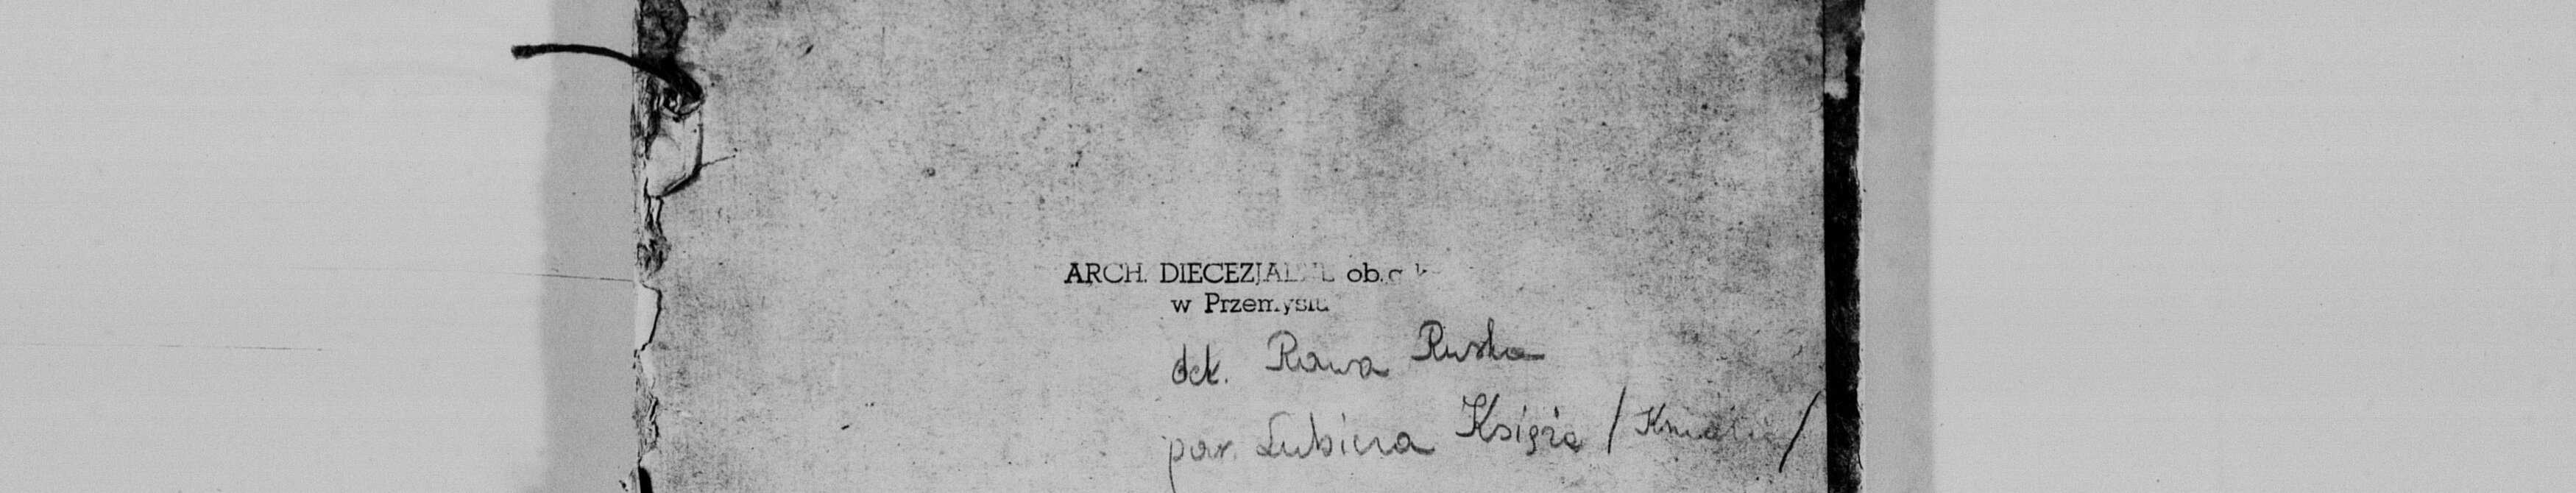 ARCH. DIECEZJALNE ob.
w Przemyślu
dek. Rawa Ruska
par. Lubicza Księża /Kniazie/